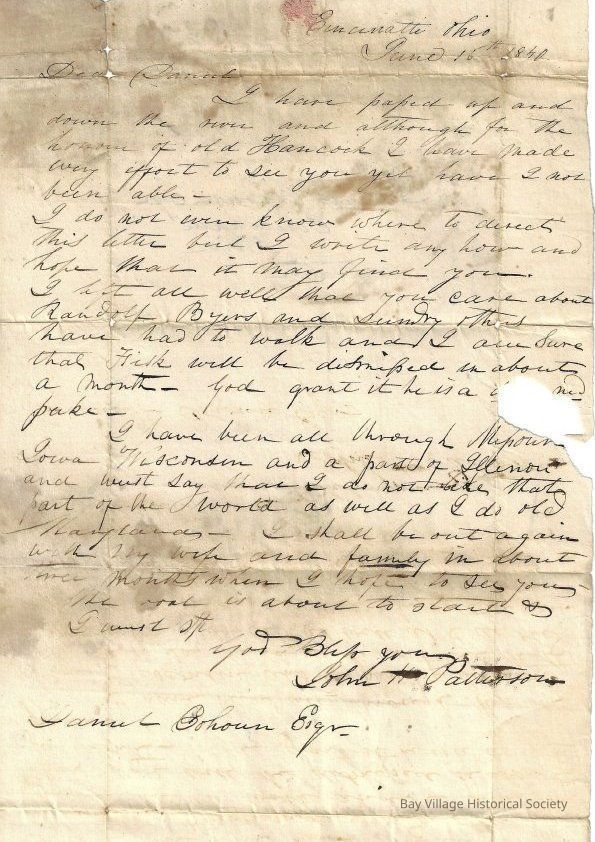 Cincinatti Ohio
June 16th 1840
Dear Daniel
I have passed up and
down the river and although for the
honour of old Hancock I have made
every effort to see you yet have I not
been able -
I do not even know where to direct
this letter but I write any how and
hope that it may find you.
I left all well that you care about
Randolf Byers and sundry others
have had to walk and I am sure
that Fisk will be dismissed in about
a month - God grant it he is a d ned
I have been all through Missouri
Iowa Wisconsin and a part of Illinoi
and must say that I do not like that
part of the world as well as I do old
Maryland - I shall be out again
with my wife and family in about
months when I hope to see you
the boat is about to start &
I must
God Bless you
John H Patterson
Daniel Cohoun Esqr
Bay Village Historical Society